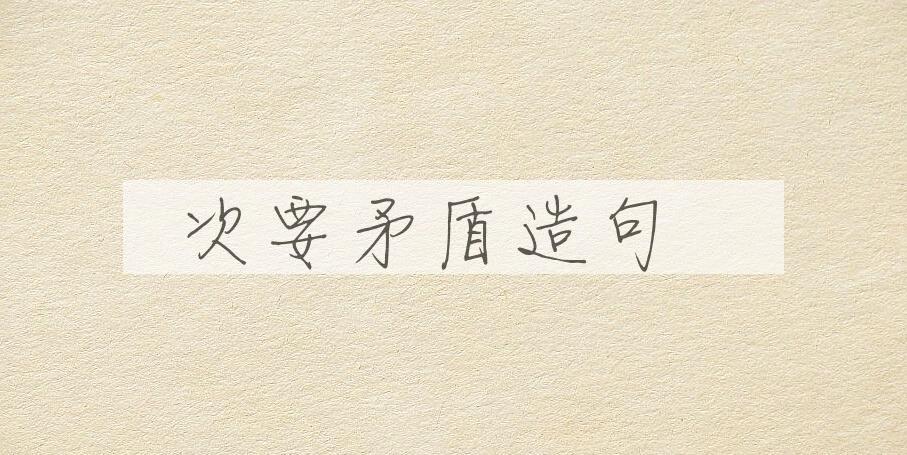 次要矛盾造句